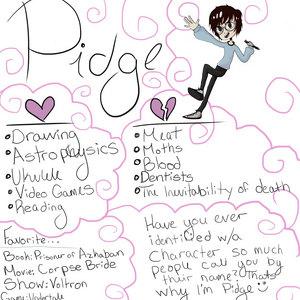 Pidge
• Drawing
• Astrophysics
• Ukulele
• Video Games
• Reading
• Meat
• Moths
• Blood
• Dentists
• The Inevitability of death
Favorite...
Book: Prisoner of Azkaban
Movie: Corpse Bride
Show: Voltron
Game: Undertale
Have you ever
identified w/a
character so much
people call you by
their name? Thats
why I'm Pidge